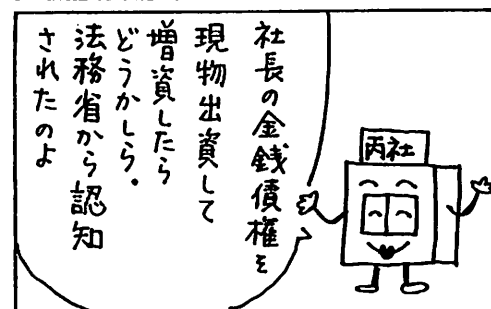 社長の金銭債権を
現物出資して
増資したら
どうかしら.
法務省から認知
されたのよ
丙社